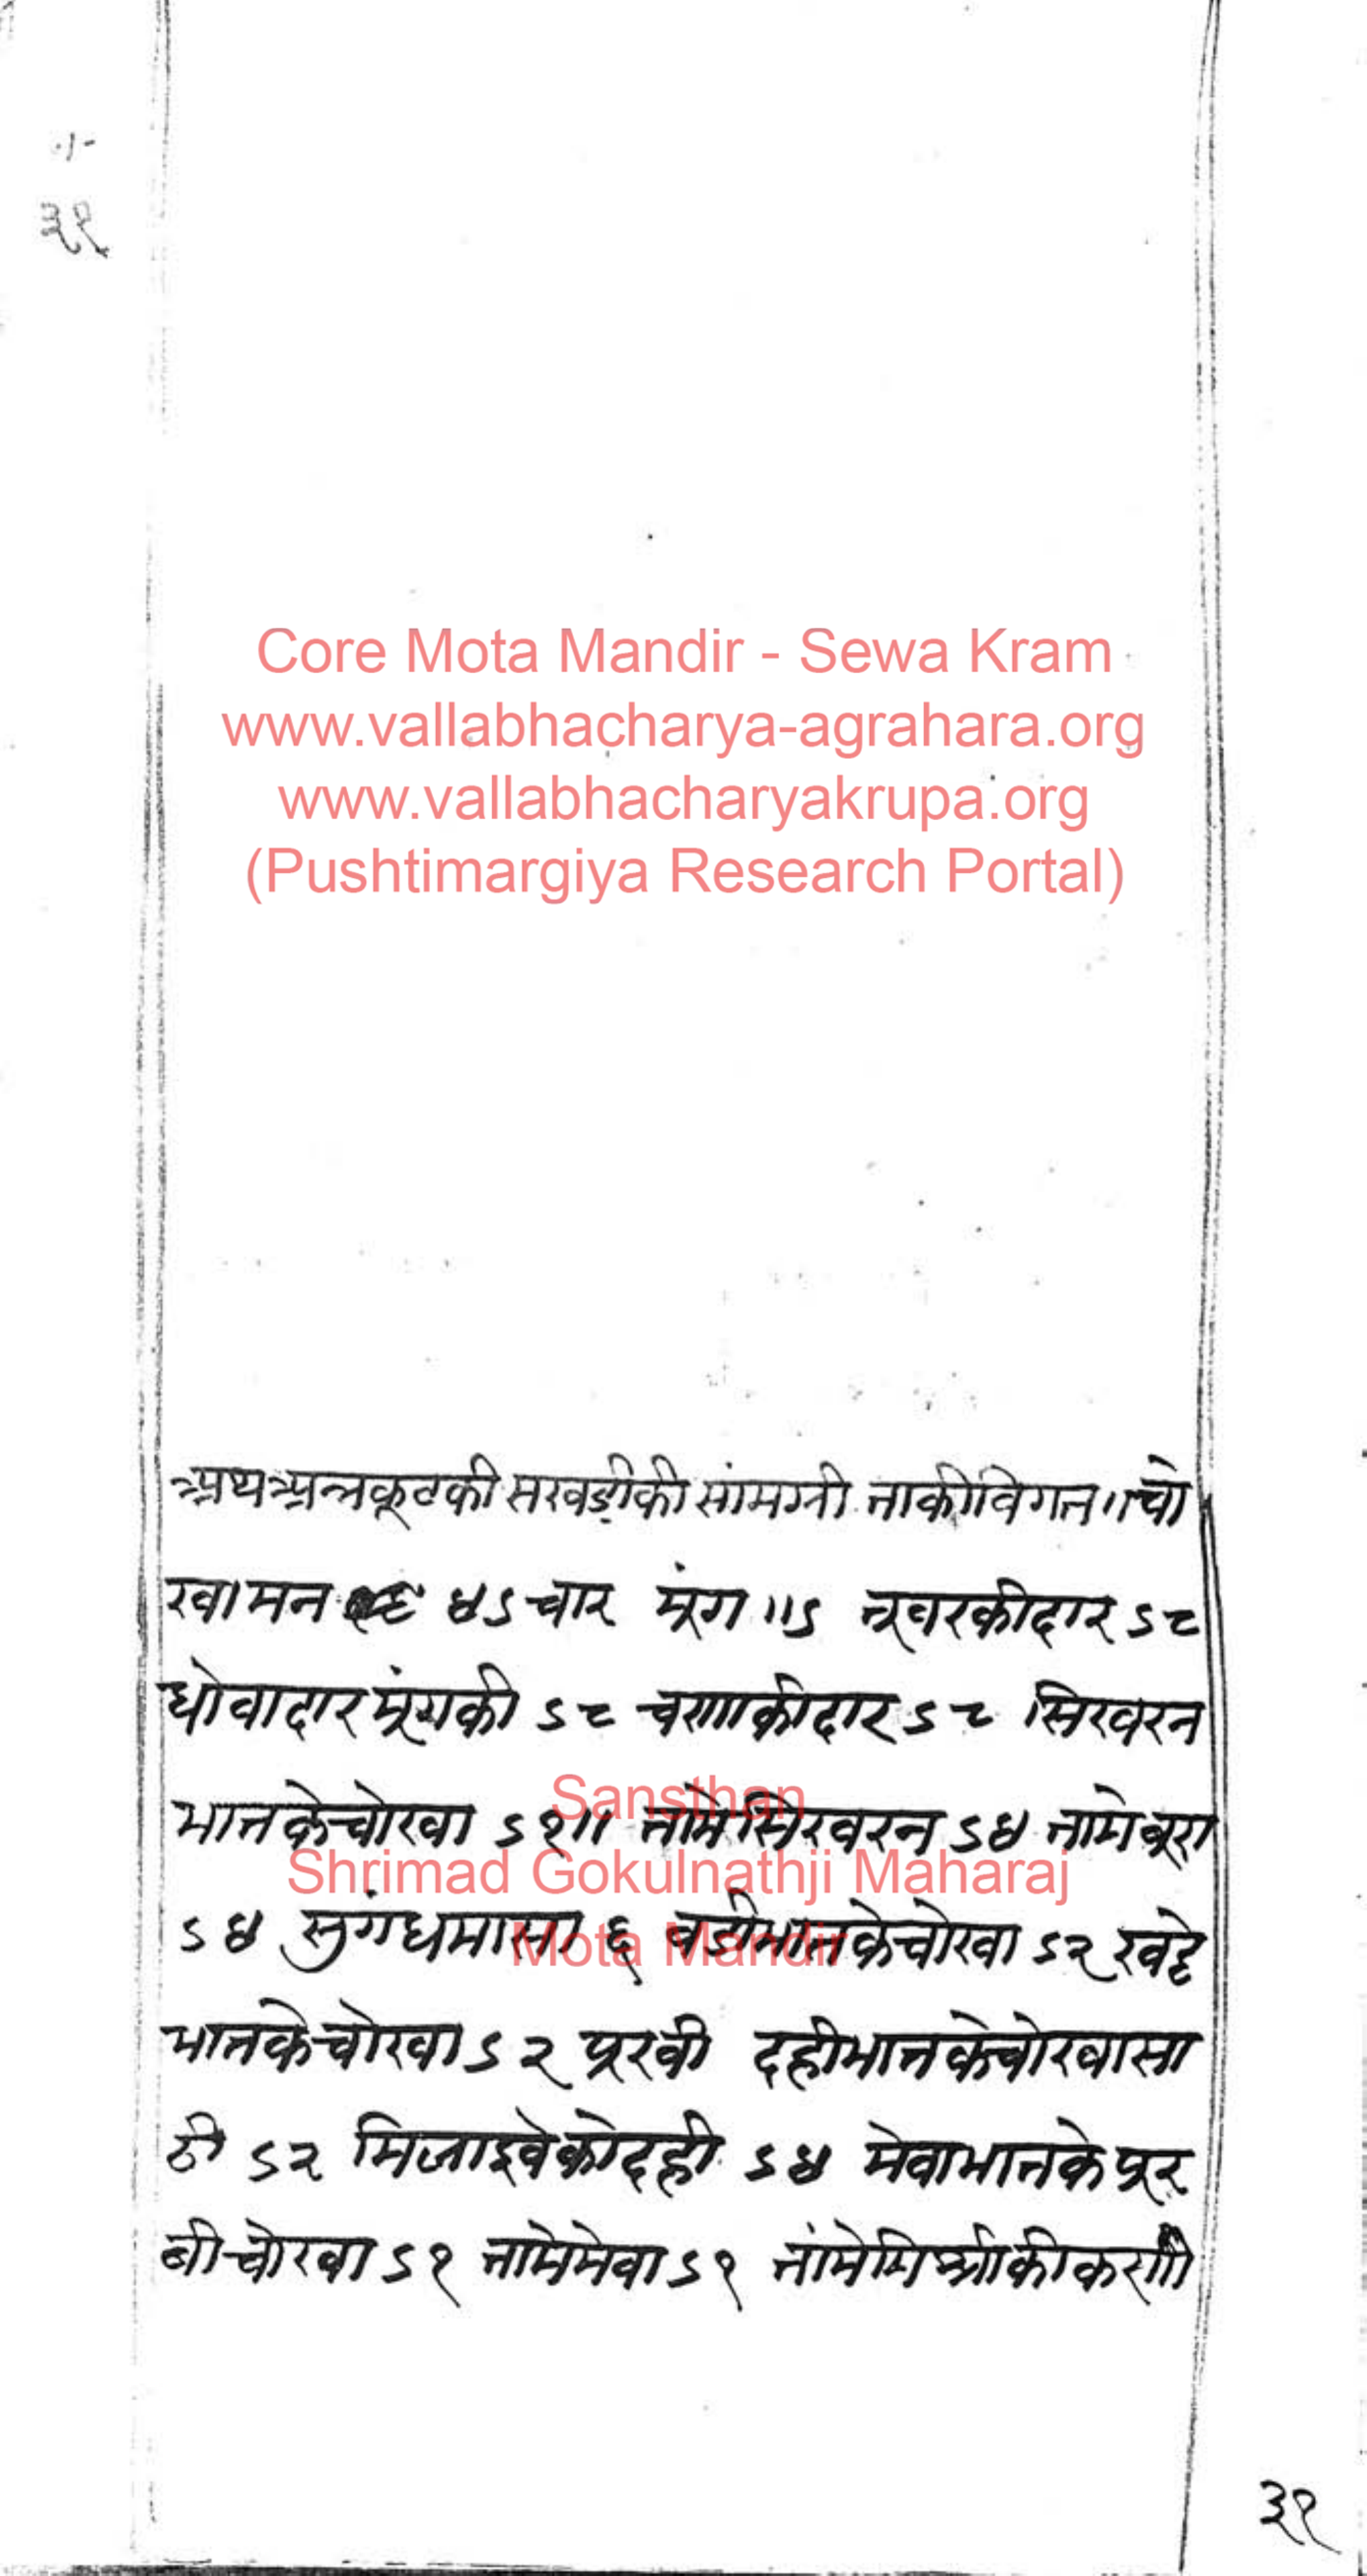 ३१
Core Mota Mandir - Sewa Kram
www.vallabhacharya-agrahara.org
www.vallabhacharyakrupa.org
(Pushtimargiya Research Portal)
अथअन्नकूटकी सखडीकी सांमग्री ताकीविगत॥चो
खामन ४ऽ चार मूंग ॥ऽ तूवरकीदार ऽ८
धोवादार मूंगकी ऽ८ चणाकीदार ऽ८ सिखरन
भातकेचोखा ऽ१॥ तामेसिखरन ऽ४ तामेबूरा
ऽ४ सुगंधमासा ६ वडीभातकेचोखा ऽ२ खट्टे
भातकेचोखा ऽ२ पूरबी दहीभातकेचोखासा
ठी ऽ२ मिजाइवेकोदही ऽ४ मेवाभातकेपूर
बीचोखा ऽ१ तामेमेवा ऽ१ तांमेमिश्रीकीकणी
Sansthan
Shrimad Gokulnathji Maharaj
Mota Mandir
३१